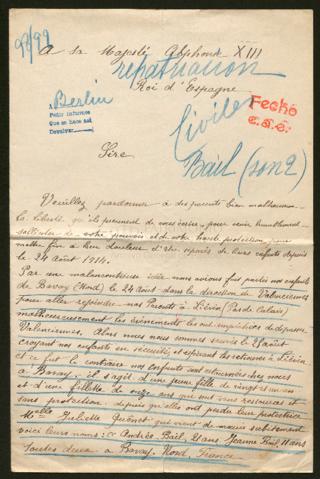 98/99
A Sa Majesté Alphonse XIII
repatriacion
Roi d'Espagne
A Berlin
Pedir informes
Que se hace así
Devolver
Fecho
c.s.e.
Civiles
Bail (son 2)
Sire,
Veuillez pardonner à des parents bien malheureux
la liberté qu'ils prennent de vous écrire, pour venir humblement
solliciter de votre pouvoir et de votre haute protection, pour
mettre fin à leur douleur d'être séparés de leurs enfants depuis
le 24 Août 1914.
Par une malencontreuse idée nous avions fait partir nos enfants
de Bavay (Nord) le 24 Août dans la direction de Valenciennes
pour aller rejoindre nos Parents à Liévin (Pas de Calais)
malheureusement les évènements les ont empêchées de dépasser
Valenciennes. Alors nous nous sommes sauvés le 25 Août
croyant nos enfants en sécurité et espérant les retrouver à Liévin
et ce fut le contraire nos enfants sont retournées chez nous
à Bavay, il s'agit d'une jeune fille de vingt et un ans
et d'une fillette de onze ans qui sont sans ressources et
sans protection depuis qu'elles ont perdu leur protectrice
Melle Juliette Quénet qui vient de mourir subitement
voici leurs noms: Andrée Bail, 21 ans Jeanne Bail, 11 ans
toutes deux à Bavay Nord, France